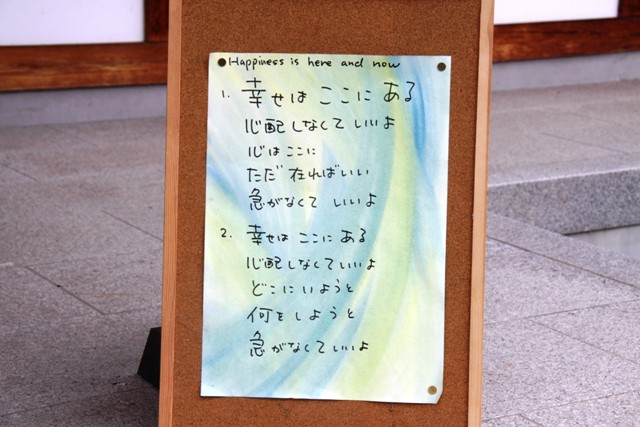 Happiness is here and now
1. 幸せは ここに ある
心配しなくていいよ
心はここに
ただ 在ればいい
急がなくて いいよ
2. 幸せは ここに ある
心配しなくていいよ
どこにいようと
何をしようと
急がなくていいよ